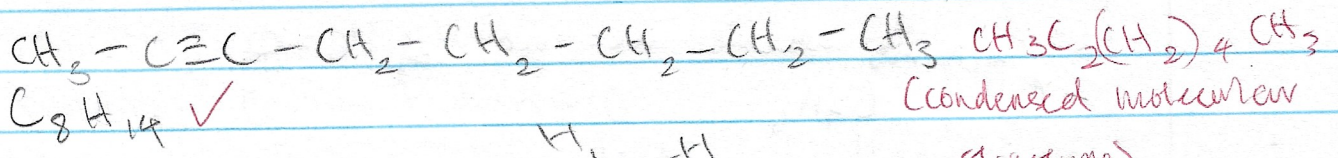 CH₃ – C≡C – CH₂ – CH₂ – CH₂ – CH₂ – CH₃ CH₃C₂(CH₂)₄CH₃
C₈H₁₄ ✓ (condensed molecular
H H